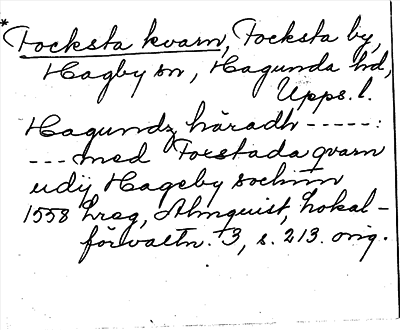 * Focksta kvarn, Focksta by,
Hagby sn, Hagunda hd,
Upps. l.
Hagundz häradh -----:
--- med Forstada qvarn
udij Hageby sochnn
1558 Lreg, Almquist, Lokal-
förvaltn. 3, s. 213. orig.